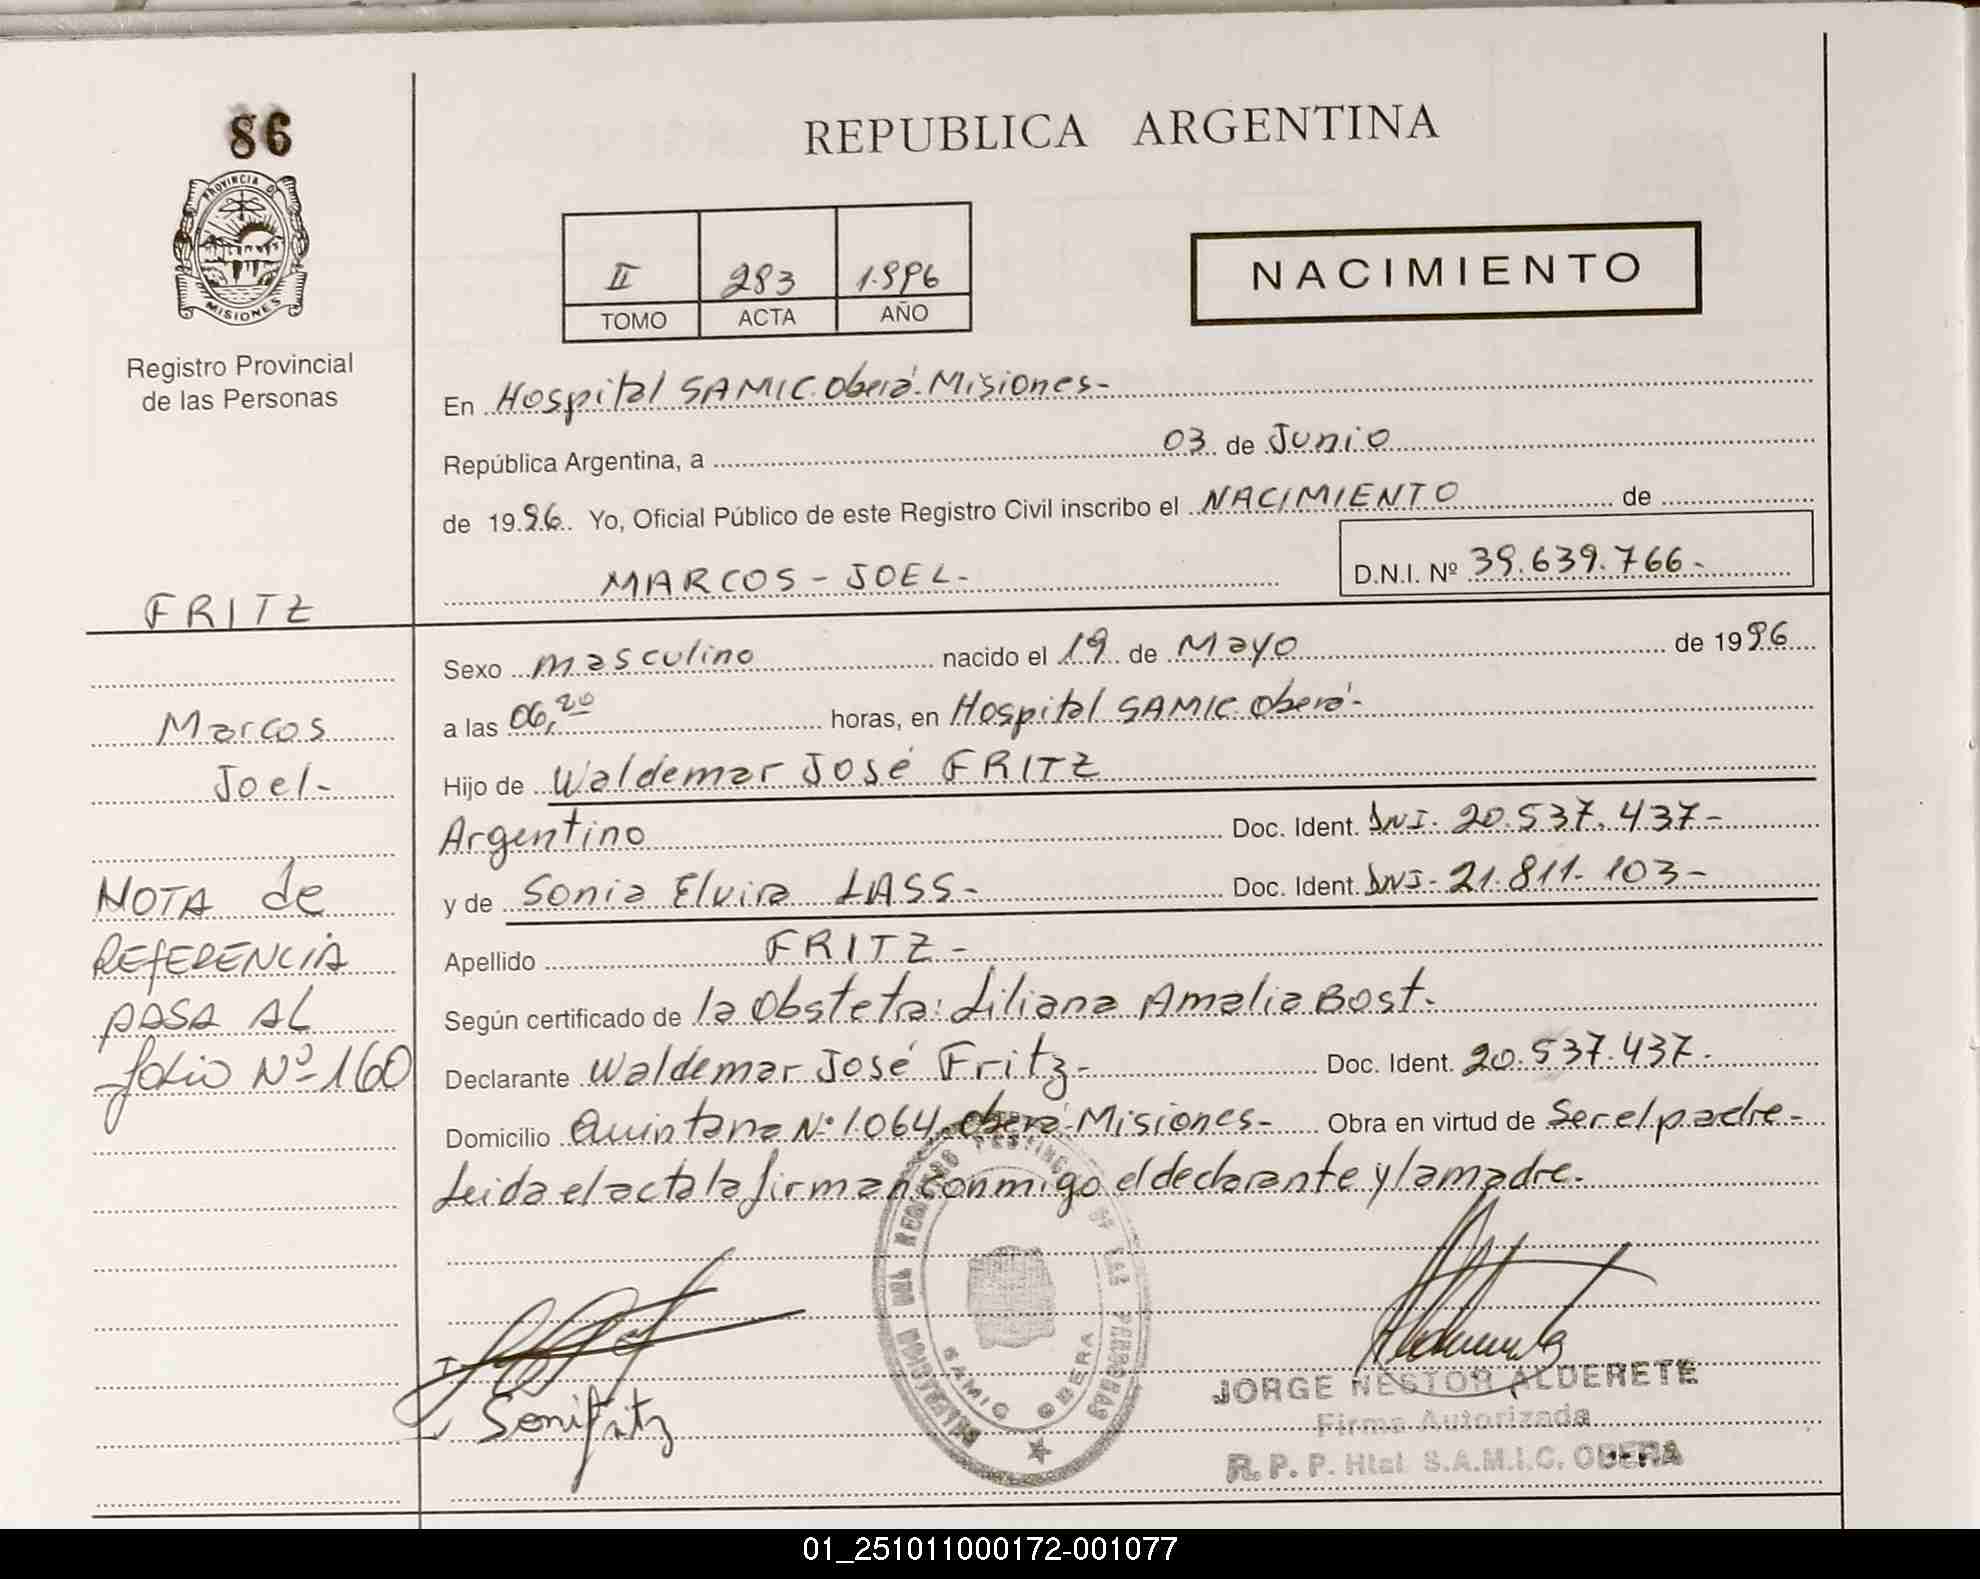 86
PROVINCIA D
MISIONES
Registro Provincial
de las Personas
FRITZ
Marcos
Joel-
NOTA de
REFERENCIA
PASA AL
folio Nº 160
REPUBLICA ARGENTINA
II 283 1.996
TOMO ACTA AÑO
NACIMIENTO
En Hospital SAMIC. Oberá. Misiones-
República Argentina, a 03 de Junio
de 1996. Yo, Oficial Público de este Registro Civil inscribo el NACIMIENTO de
MARCOS - JOEL- D.N.I. Nº 39.639.766.-
Sexo masculino nacido el 19 de Mayo de 1996
a las 06,20 horas, en Hospital SAMIC. Oberá-
Hijo de Waldemar José FRITZ
Argentino Doc. Ident. DNI. 20.537.437-
y de Sonia Elvira LASS- Doc. Ident. DNI- 21.811.103-
Apellido FRITZ-
Según certificado de la Obsteta: Liliana Amalia Bost.
Declarante Waldemar José Fritz- Doc. Ident. 20.537.437.
Domicilio Quintana Nº 1.064. Oberá-Misiones- Obra en virtud de Ser el padre-
Leida el acta la firman conmigo el declarante y la madre.
REGISTRO DE LAS PERSONAS
SAMIC OBERA
JORGE NESTOR ALDERETE
Firma Autorizada
R. P. P. Htal. S.A.M.I.C. OBERA
01_251011000172-001077